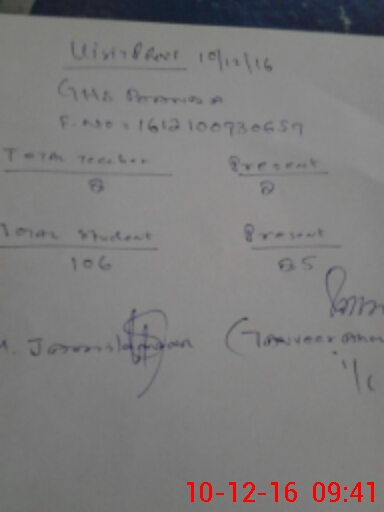 Visit Proof 10/12/16
GHS
F. NO : 1612100730659
Total Teacher Present
2 2
Total Student Present
106 85
M.
I/C
10-12-16 09:41